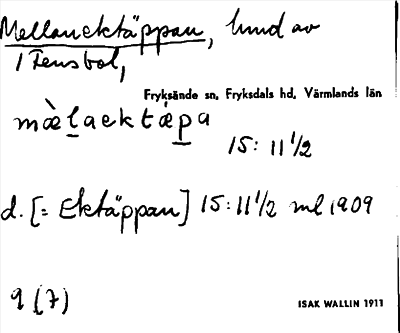 Mellanektäppan, hmd av
1 Tensbol,
Fryksände sn, Fryksdals hd, Värmlands län
mæ̀laektæ̀pa
15: 11 1/2
d. [= Ektäppan] 15:11 1/2 ml 1909
9 (7)
ISAK WALLIN 1911